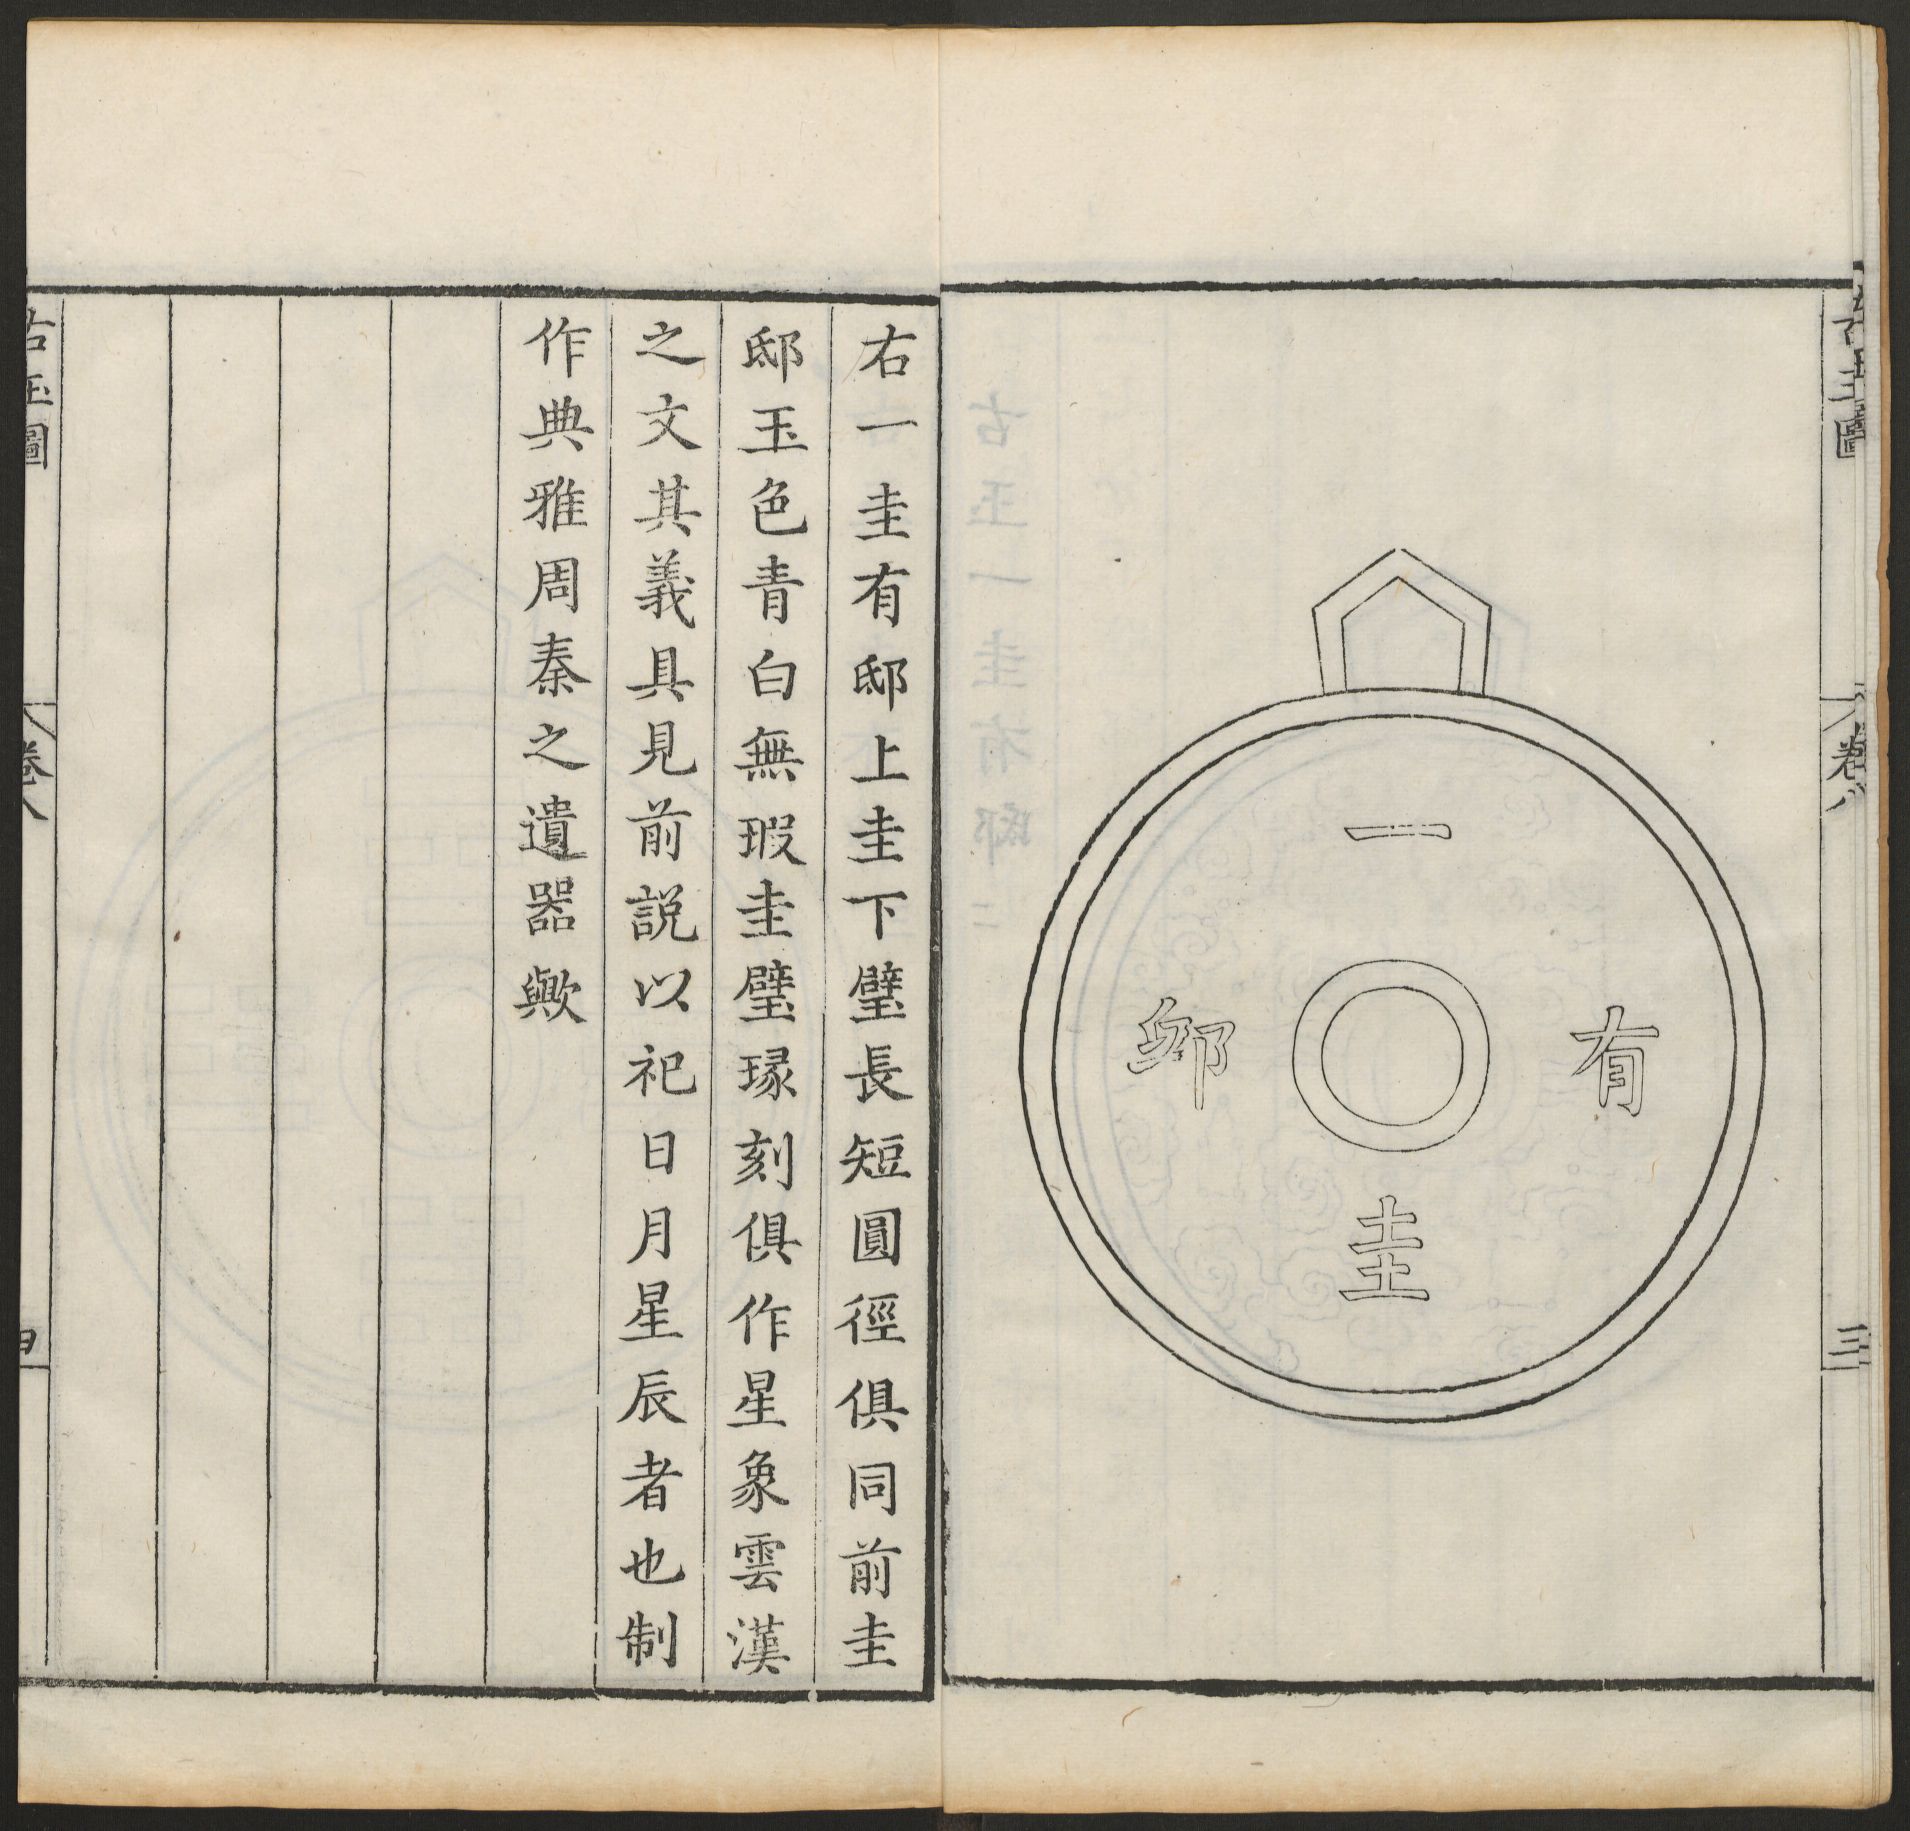 古玉圖
卷八
三
一
有
圭
邸
右一圭有邸上圭下璧長短圓徑俱同前圭
邸玉色青白無瑕圭璧瑑刻俱作星象雲漢
之文其義具見前說以祀日月星辰者也制
作典雅周秦之遺器歟
古玉圖
卷八